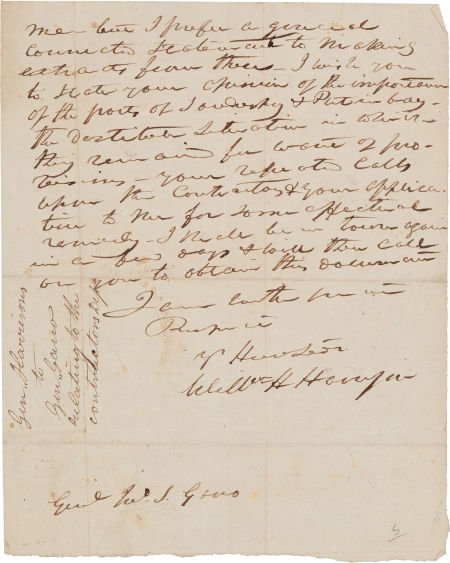 me - but I prefer a general
connected Statement to making
extracts from them - I wish you
to state your opinion of the importance
of the posts of Sandusky & Put in bay -
the destitute situation in which
they remained for want of pro-
visions - your repeated calls
upon the Contractors & your applica-
tion to me for some effectual
remedy - I shall be in town again
in a few days & will then call
on you to obtain this document
I am with great
Respect
yr Hum Servt
Willm H Harrison
Genl Jno. S. Gano
Gen. Harrisons
to
Gen. Gano
relating to the
contractors